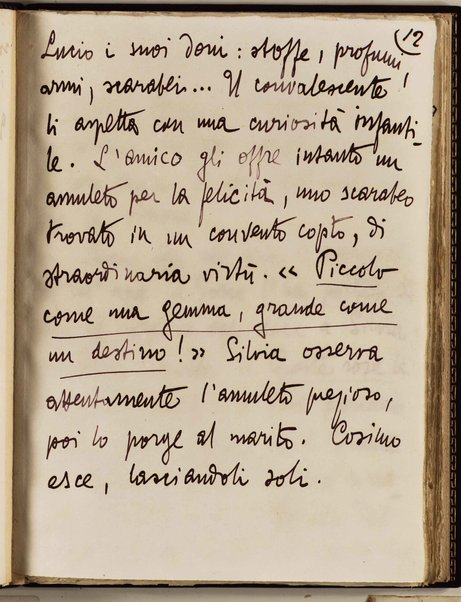 12
Lucio i suoi doni: stoffe, profumi,
armi, scarabei... Il convalescente
li aspetta con una curiosità infanti-
le. L'amico gli offre intanto un
amuleto per la felicità, uno scarabeo
trovato in un convento copto, di
straordinaria virtù. « Piccolo
come una gemma, grande come
un destino!» Silvia osserva
attentamente l'amuleto prezioso,
poi lo porge al marito. Cosimo
esce, lasciandoli soli.